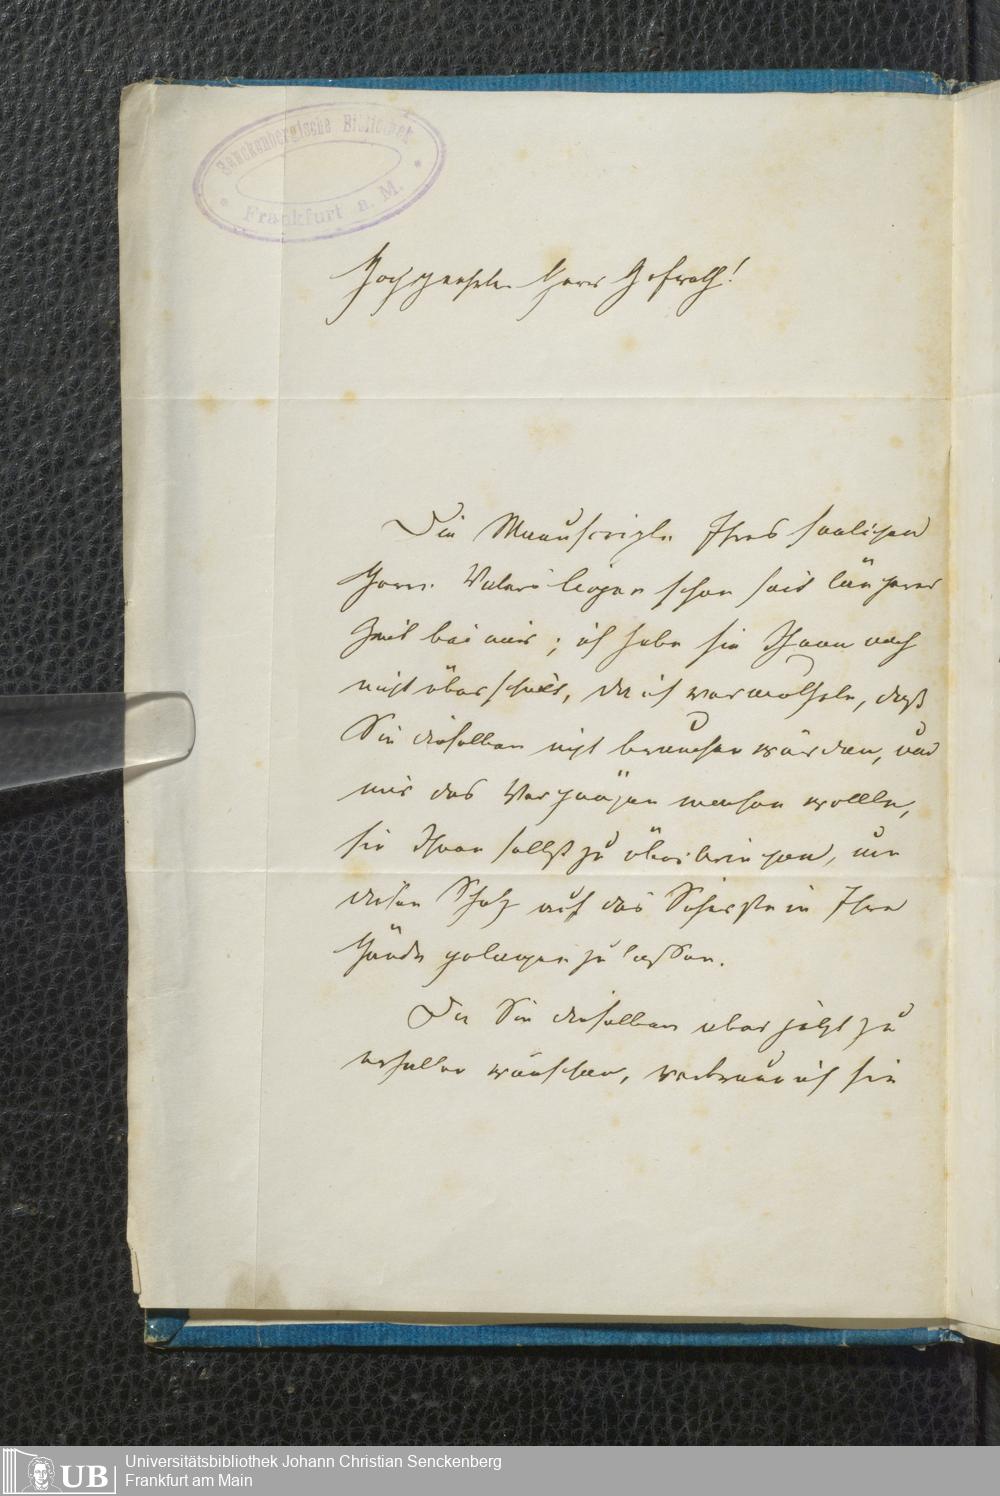 Senckenbergische Bibliothek
Frankfurt a. M.
Hochgeehrter Herr Hofrath!
Die Manuscripte Ihres seeligen
Herrn Vaters liegen schon seit längerer
Zeit bei mir; ich habe sie Ihnen noch
nicht überschickt, da ich vermuthete, daß
Sie dieselben nicht brauchen würden, und
mir das Vergnügen machen wollte,
sie Ihnen selbst zu überbringen, um
diesen Schatz auf das Sicherste in Ihre
Hände gelangen zu lassen.
Da Sie dieselben aber jetzt zu
erhalten wünschen, vertraue ich sie
UB
Universitätsbibliothek Johann Christian Senckenberg
Frankfurt am Main